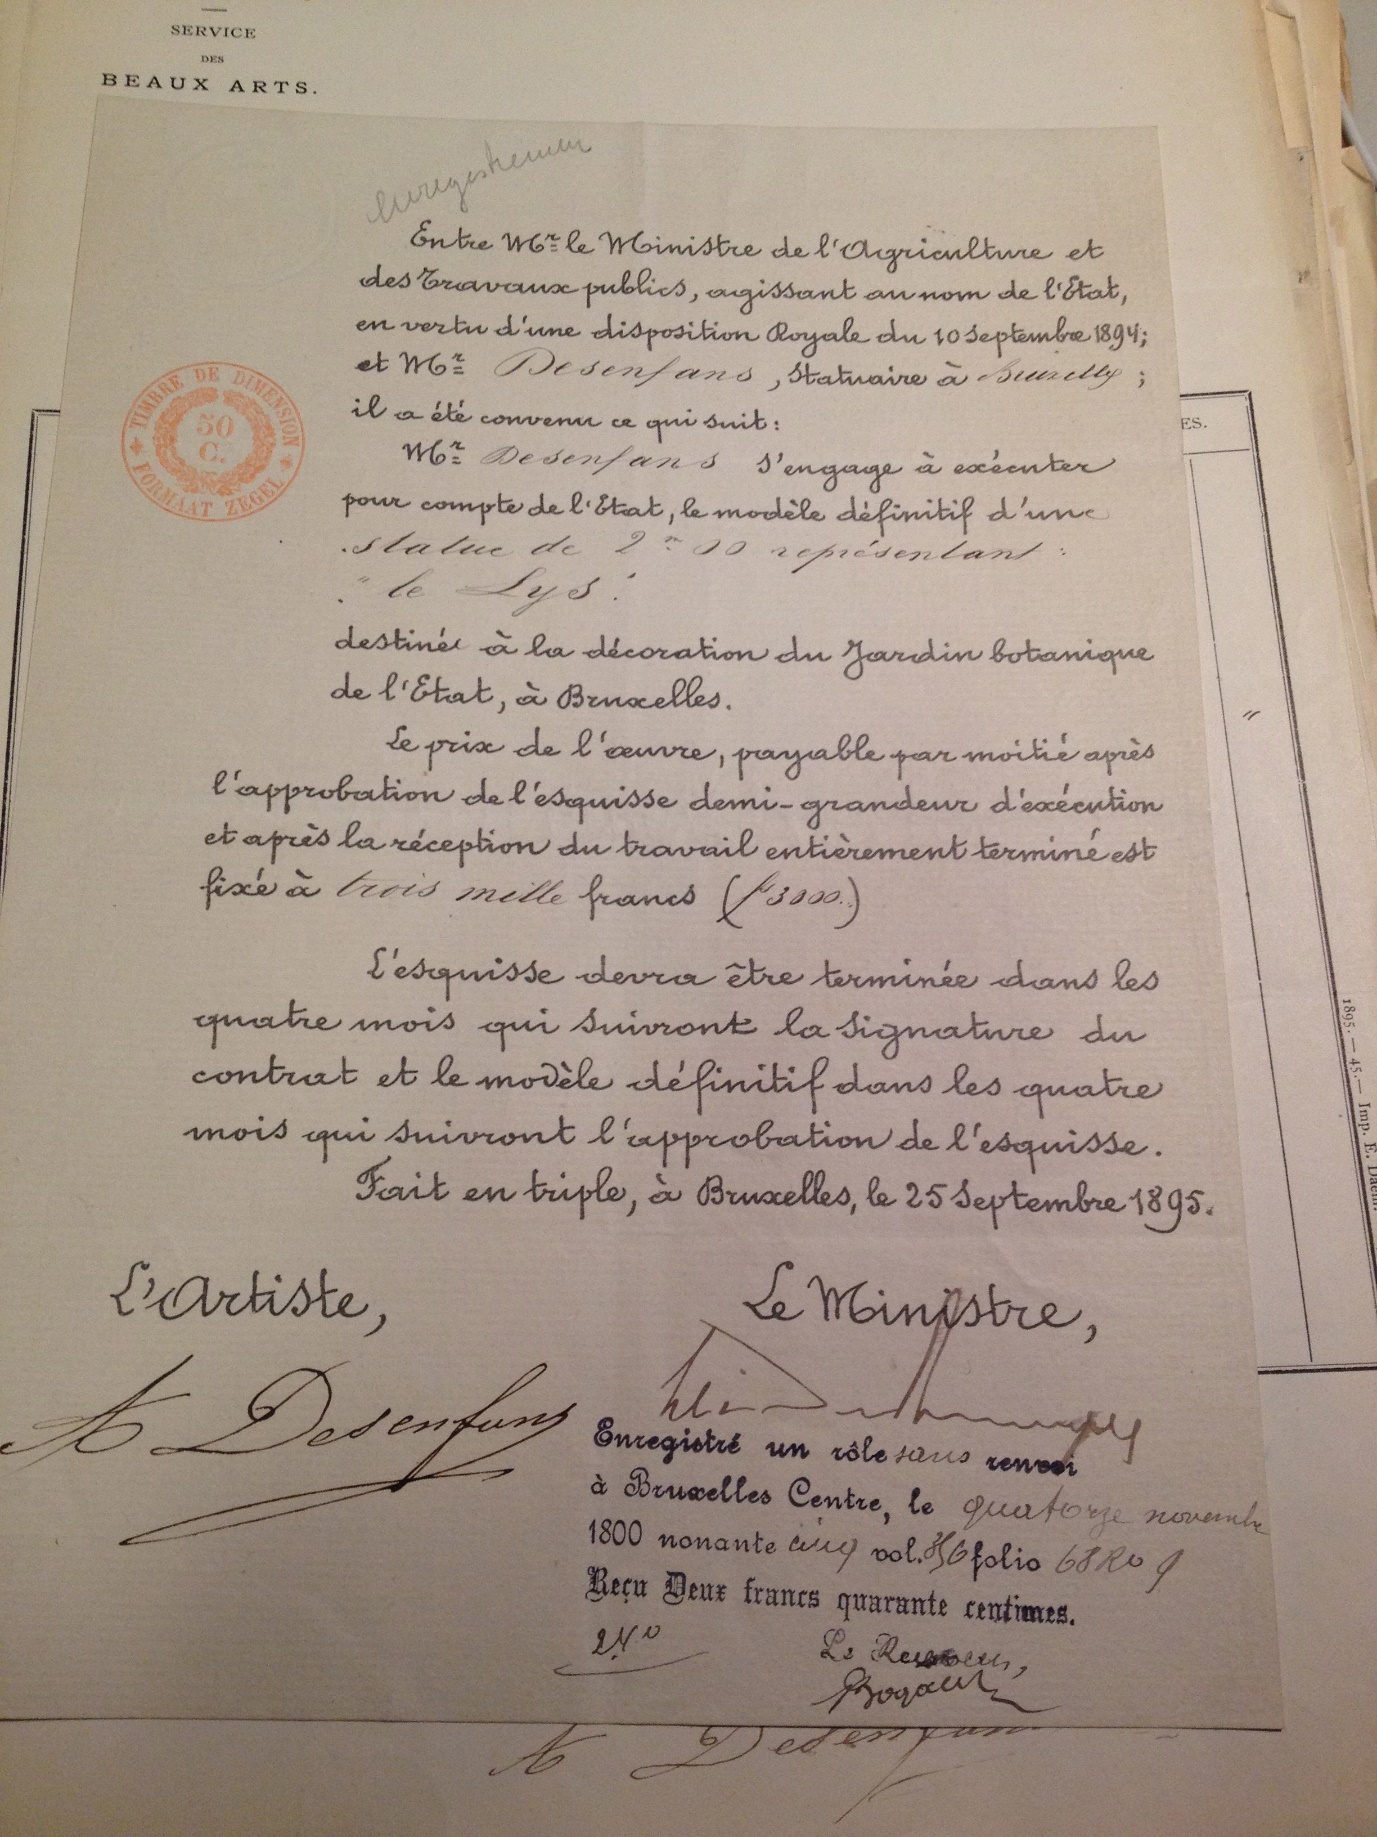 SERVICE
DES
BEAUX ARTS.
Enregistrement
Entre Mr le Ministre de l'Agriculture et
des Travaux publics, agissant au nom de l'Etat,
en vertu d'une disposition Royale du 10 Septembre 1894;
et Mr Desenfans, Statuaire à Bruxelles;
il a été convenu ce qui suit:
Mr Desenfans s'engage à exécuter
pour compte de l'Etat, le modèle définitif d'une
statue de 2m00 représentant:
"le Lys".
destinée à la décoration du Jardin botanique
de l'Etat, à Bruxelles.
Le prix de l'œuvre, payable par moitié après
l'approbation de l'ésquisse demi-grandeur d'éxécution
et après la réception du travail entièrement terminé est
fixé à trois mille francs (f 3000.)
L'esquisse devra être terminée dans les
quatre mois qui suivront la signature du
contrat et le modèle définitif dans les quatre
mois qui suivront l'approbation de l'esquisse.
Fait en triple, à Bruxelles, le 25 Septembre 1895.
TIMBRE DE DIMENSION
50
C.
FORMAAT ZEGEL
L'Artiste,
Le Ministre,
A Desenfans
Enregistré un rôle sans renvoi
à Bruxelles Centre, le quatorze novembre
1800 nonante cinq vol. folio 68 Ro 9
Reçu Deux francs quarante centimes.
Le Receveur,
A Desenfans
ES.
"
1895. — 45. — Imp. E.